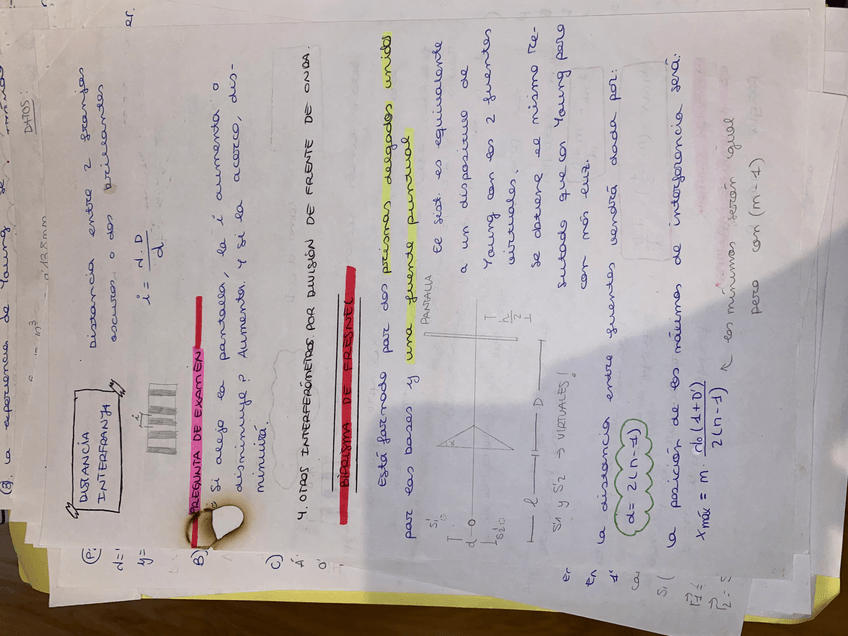 DISTANCIA
INTERFRANJA
Distancia entre 2 franjas
oscuras o dos brillantes
i
i = λ·D / d
PREGUNTA DE EXAMEN
Si alejo la pantalla, la i aumenta o
disminuye? Aumenta. Y si la acerco, dis-
minuirá.
4. OTROS INTERFERÓMETROS POR DIVISIÓN DE FRENTE DE ONDA.
BIPRISMA DE FRESNEL
Está formado por dos prismas delgados unidos
por las bases y una fuente puntual
El sist. es equivalente
a un dispositivo de
Young con las 2 fuentes
virtuales.
Se obtiene el mismo re-
sultado que con Young pero
con más luz.
PANTALLA
S'1
d
S'2
l
D
S'1 y S'2 → VIRTUALES!
La distancia entre fuentes vendrá dada por:
d = 2(n-1)
La posición de los máximos de interferencia será:
x máx = m · λo(d+D') / 2(n-1)
los mínimos serán igual
pero con (m-1)
(B) La experiencia de Young se
DATOS:
B)
C)
En